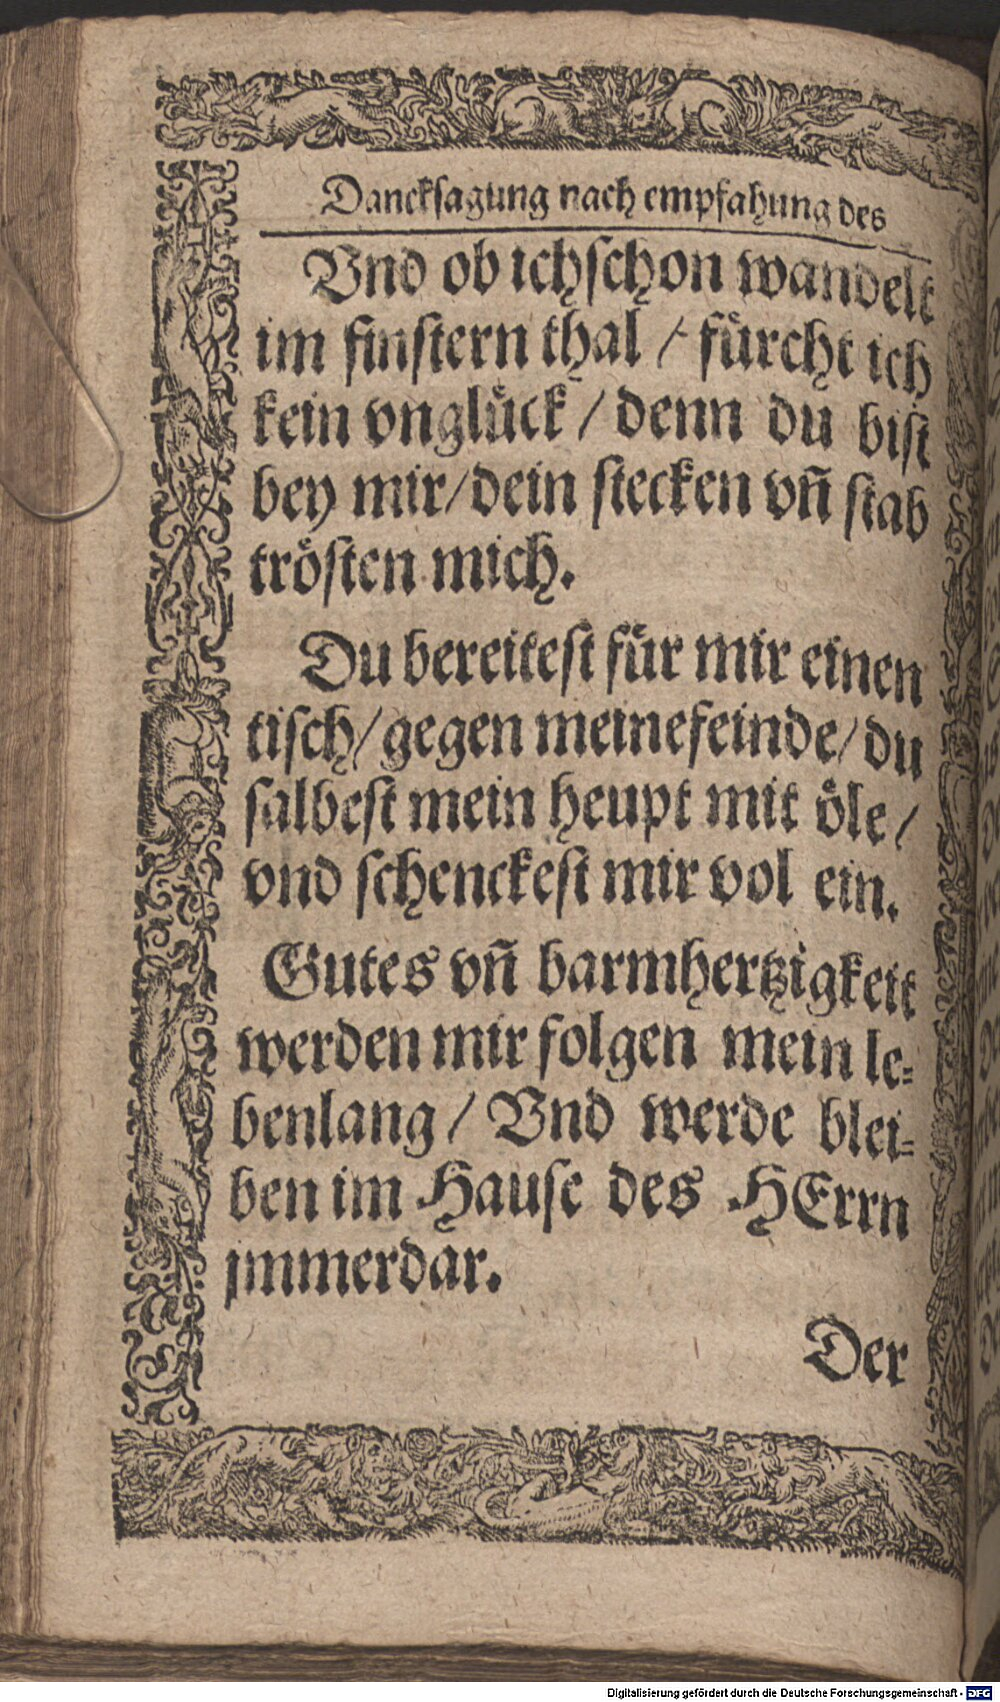 Danckſagung nach empfahung des
Vnd ob ich ſchon wandelt
im finſtern thal / fürcht ich
kein vnglück / denn du biſt
bey mir / dein ſtecken vñ ſtab
tröſten mich.
Du bereiteſt für mir einen
tiſch / gegen meine feinde / du
ſalbeſt mein heupt mit öle /
vnd ſchenckeſt mir vol ein.
Gutes vñ barmhertzigkeit
werden mir folgen mein le-
benlang / Vnd werde blei-
ben im Hauſe des HErrn
jmmerdar.
Der
Digitalisierung gefördert durch die Deutsche Forschungsgemeinschaft - DFG